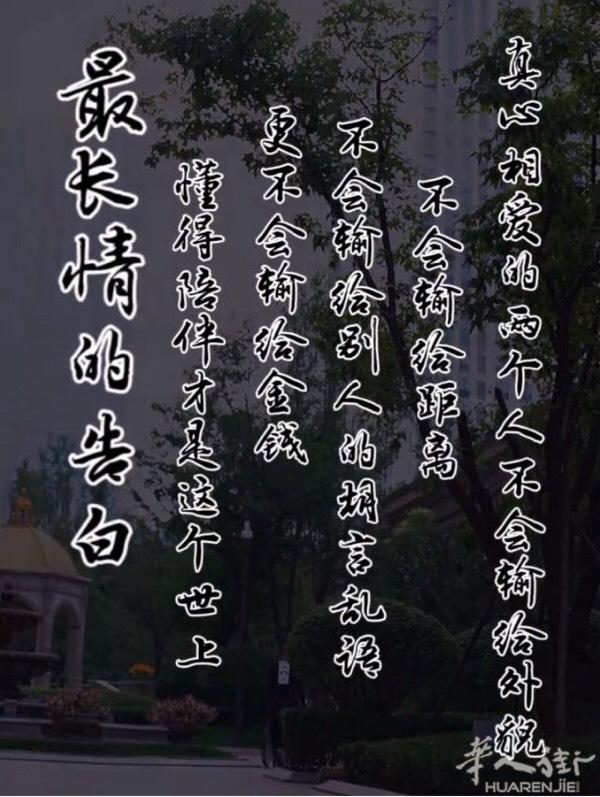 真心相爱的两个人不会输给外貌
不会输给距离
不会输给别人的胡言乱语
更不会输给金钱
懂得陪伴才是这个世上
最长情的告白
华人街
HUARENJIE